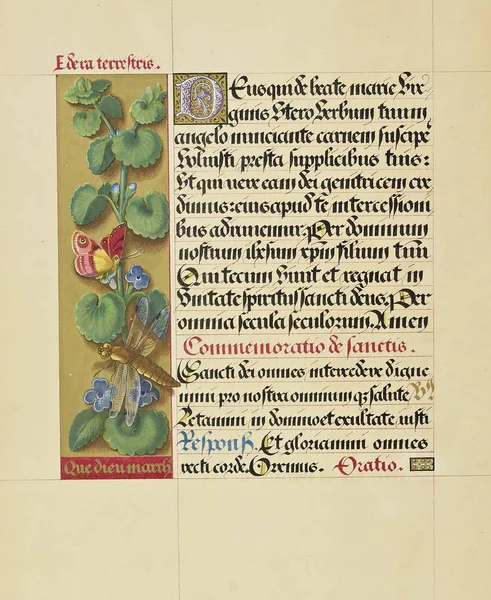 Edera terrestris.
Deus qui de beate marie vir
ginis Utero Verbum tuum
angelo nunciante carnem suscipe
Voluisti presta supplicibus tuis:
Ut qui vere eam dei genitricem cre
dimus: eius apud te intercessioni
bus adiuuemur. Per dominum
nostrum ihesum xpm filium tuu
Qui tecum Viuit et regnat in
Unitate spiritus sancti deus. Per
omnia secula seculorum. Amen
Commemoratio de sanctis.
Sancti dei omnes intercedere digne
mini pro nostra omnium q; salute
Letamini in domino et exultate iusti
Respons. Et gloriamini omnes
recti corde. Oremus. Oratio.
Que dieu march